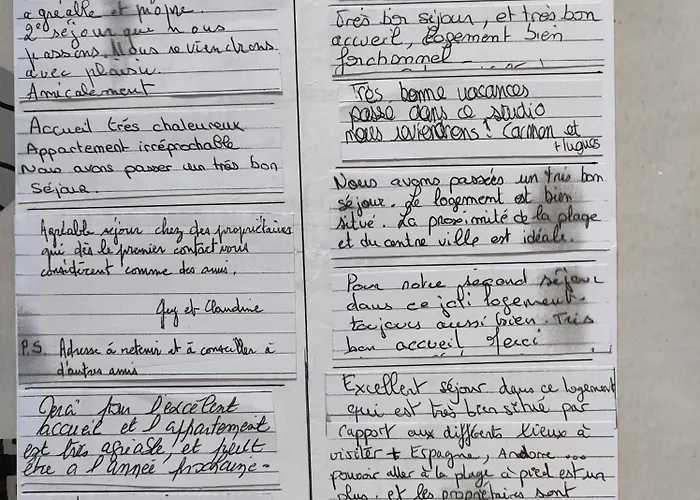 agréable et propre.
2e séjour que nous
passons. Nous reviendrons
avec plaisir.
Amicalement
Accueil très chaleureux
Appartement irréprochable
Nous avons passer un très bon
Séjour.
Agréable séjour chez des propriétaires
qui dès le premier contact vous
considèrent comme des amis.
Guy et Claudine
P.S. Adresse à retenir et à conseiller à
d'autres amis
pour l'excélent
accueil et l'appartement
est très agréable, et peut
être a l'année prochaine.
Très bon séjour, et très bon
accueil, logement bien
fonctionnel
Très bonne vacances
passé dans ce studio
nous reviendrons! Carmen et
+ Hugues
Nous avons passées un très bon
séjour. Le logement est bien
situé. La proximité de la plage
et du centre ville est idéale.
Pour notre second séjour
dans ce joli logement.
toujours aussi bien. Très
bon accueil Merci
Excellent séjour dans ce logement
qui est très bien situé par
rapport aux différents lieux à
visiter + Espagne, Andorre ...
pouvoir aller à la plage à pied est un
plus, et les propriétaires sont